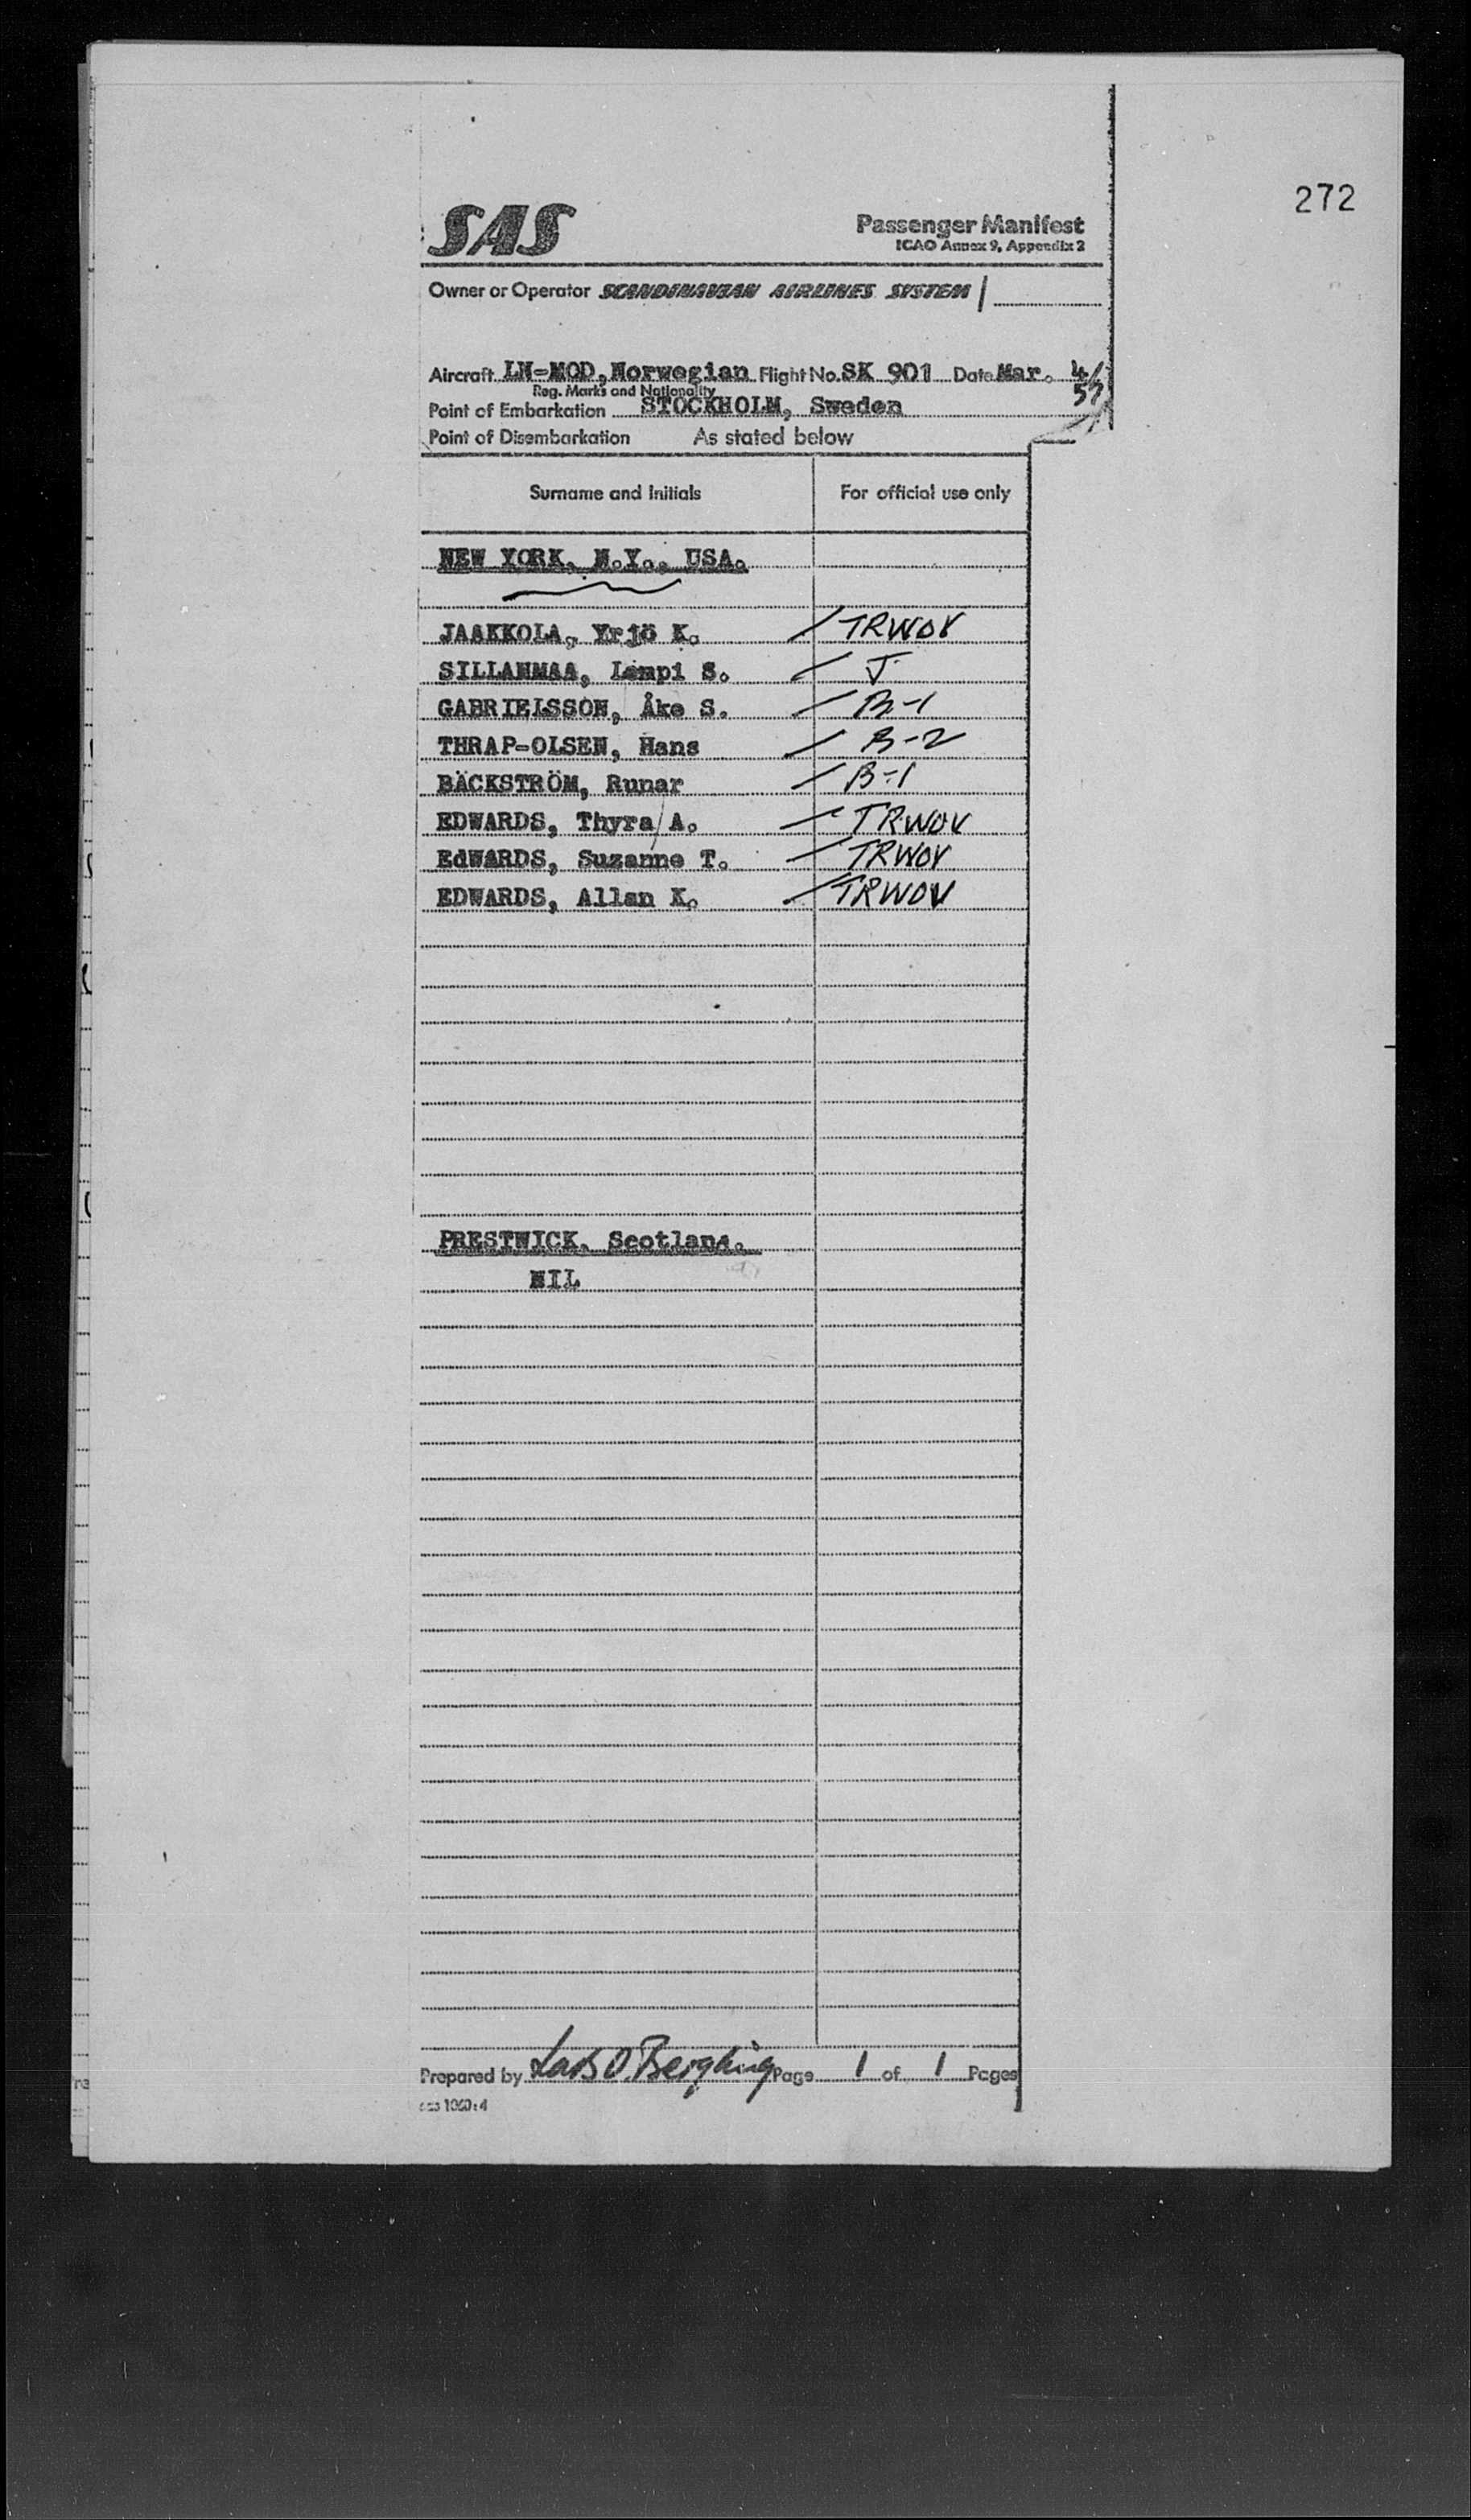 272
SAS
Passenger Manifest
ICAO Annex 9, Appendix 2
Owner or Operator SCANDINAVIAN AIRLINES SYSTEM
Aircraft LN-MOD, Norwegian Flight No. SK 901 Date Mar. 4/
57
Reg. Marks and Nationality
Point of Embarkation STOCKHOLM, Sweden
Point of Disembarkation As stated below
Surname and Initials For official use only
NEW YORK, N.Y., USA.
JAAKKOLA, Yrjö K. TRWOV
SILLANMAA, Lempi S. J
GABRIELSSON, Åke S. B-1
THRAP-OLSEN, Hans B-2
BÄCKSTRÖM, Runar B-1
EDWARDS, Thyra A. TRWOV
EdWARDS, Suzanne T. TRWOV
EDWARDS, Allan K. TRWOV
PRESTWICK, Scotland.
NIL
Prepared by Page 1 of 1 Pages